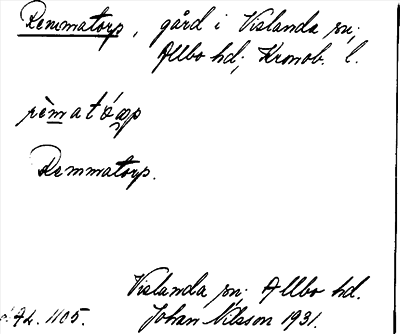 Remmatorp, gård i Vislanda sn;
Allbo hd; Kronob. l.
rèmatórp
Remmatorp.
Vislanda sn; Allbo hd.
Johan Nilsson 1931.
1105.